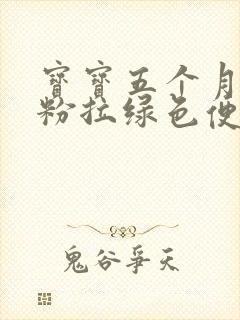 寶寶五个月
粉拉绿色便
鬼谷爭天